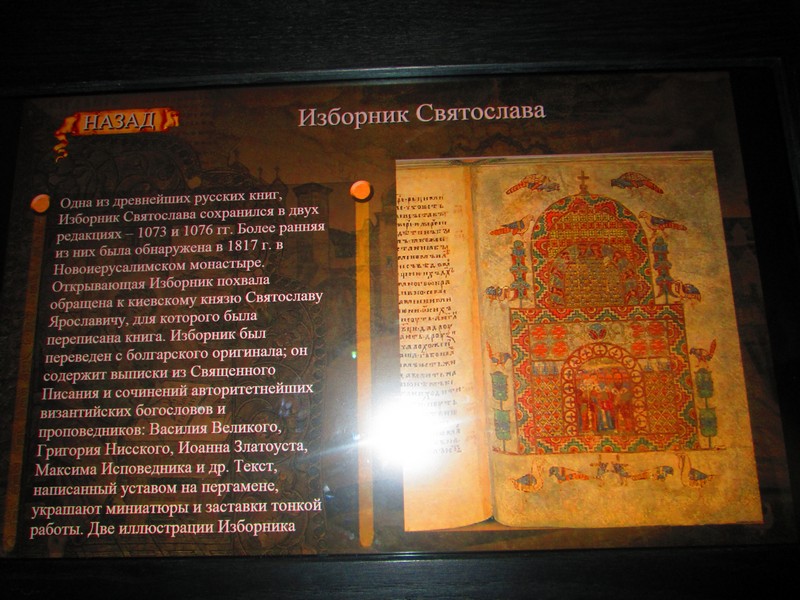 НАЗАД
Изборник Святослава
Одна из древнейших русских книг,
Изборник Святослава сохранился в двух
редакциях – 1073 и 1076 гг. Более ранняя
из них была обнаружена в 1817 г. в
Новоиерусалимском монастыре.
Открывающая Изборник похвала
обращена к киевскому князю Святославу
Ярославичу, для которого была
переписана книга. Изборник был
переведен с болгарского оригинала; он
содержит выписки из Священного
Писания и сочинений авторитетнейших
византийских богословов и
проповедников: Василия Великого,
Григория Нисского, Иоанна Златоуста,
Максима Исповедника и др. Текст,
написанный уставом на пергамене,
украшают миниатюры и заставки тонкой
работы. Две иллюстрации Изборника